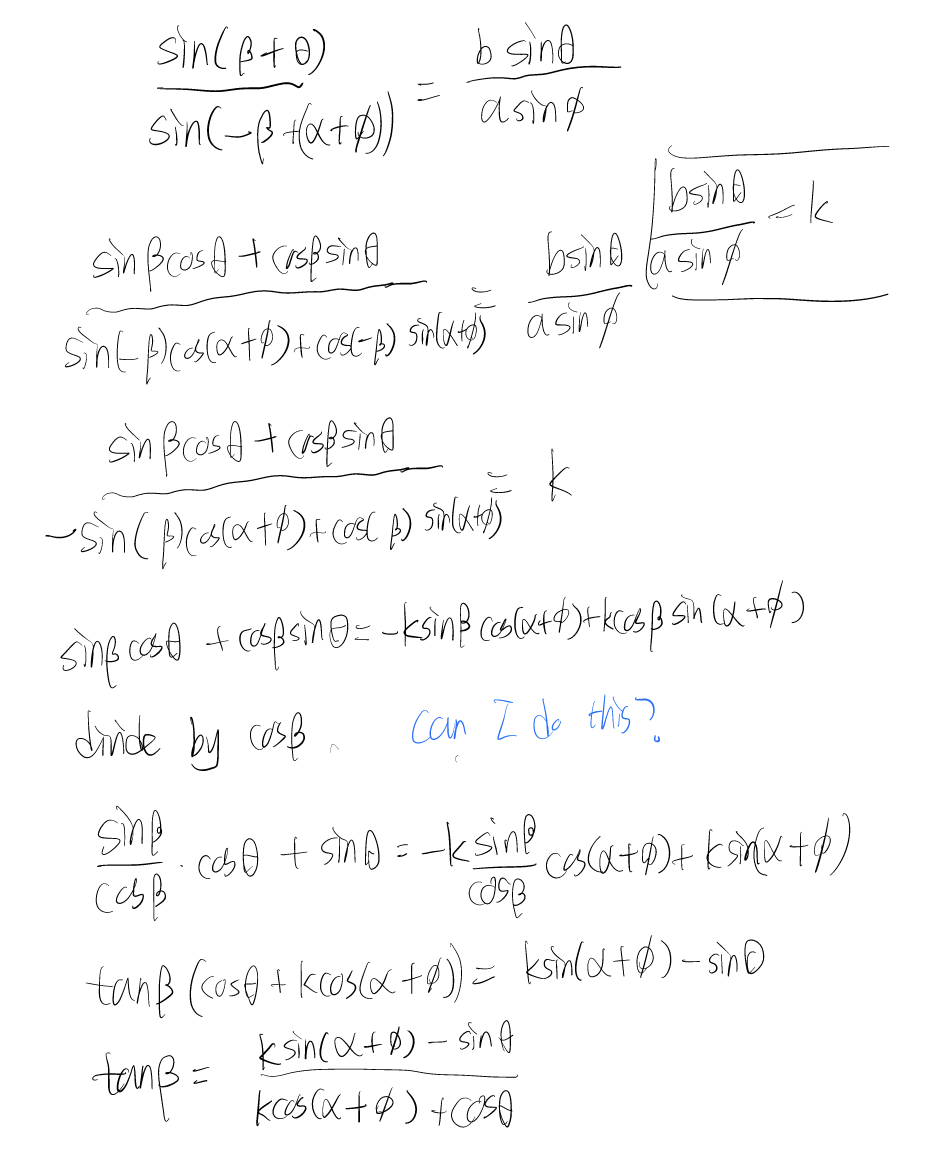 sin(β+θ)/sin(-β+(α+ϕ)) = b sinθ/a sinϕ
b sinθ/a sinϕ = k
sinβcosθ + cosβsinθ/sin(-β)cos(α+ϕ)+cos(-β) sin(α+ϕ) = b sinθ/a sinϕ
sinβcosθ + cosβsinθ/-sin(β)cos(α+ϕ)+cos(β) sin(α+ϕ) = k
sinβ cosθ + cosβsinθ = -ksinβ cos(α+ϕ)+kcosβ sin(α+ϕ)
divide by cosβ. Can I do this?
sinβ/cosβ · cosθ + sinθ = -k sinβ/cosβ cos(α+ϕ)+ ksin(α+ϕ)
tanβ (cosθ + kcos(α+ϕ)) = ksin(α+ϕ) - sinθ
tanβ = ksin(α+ϕ) - sinθ/kcos(α+ϕ) + cosθ